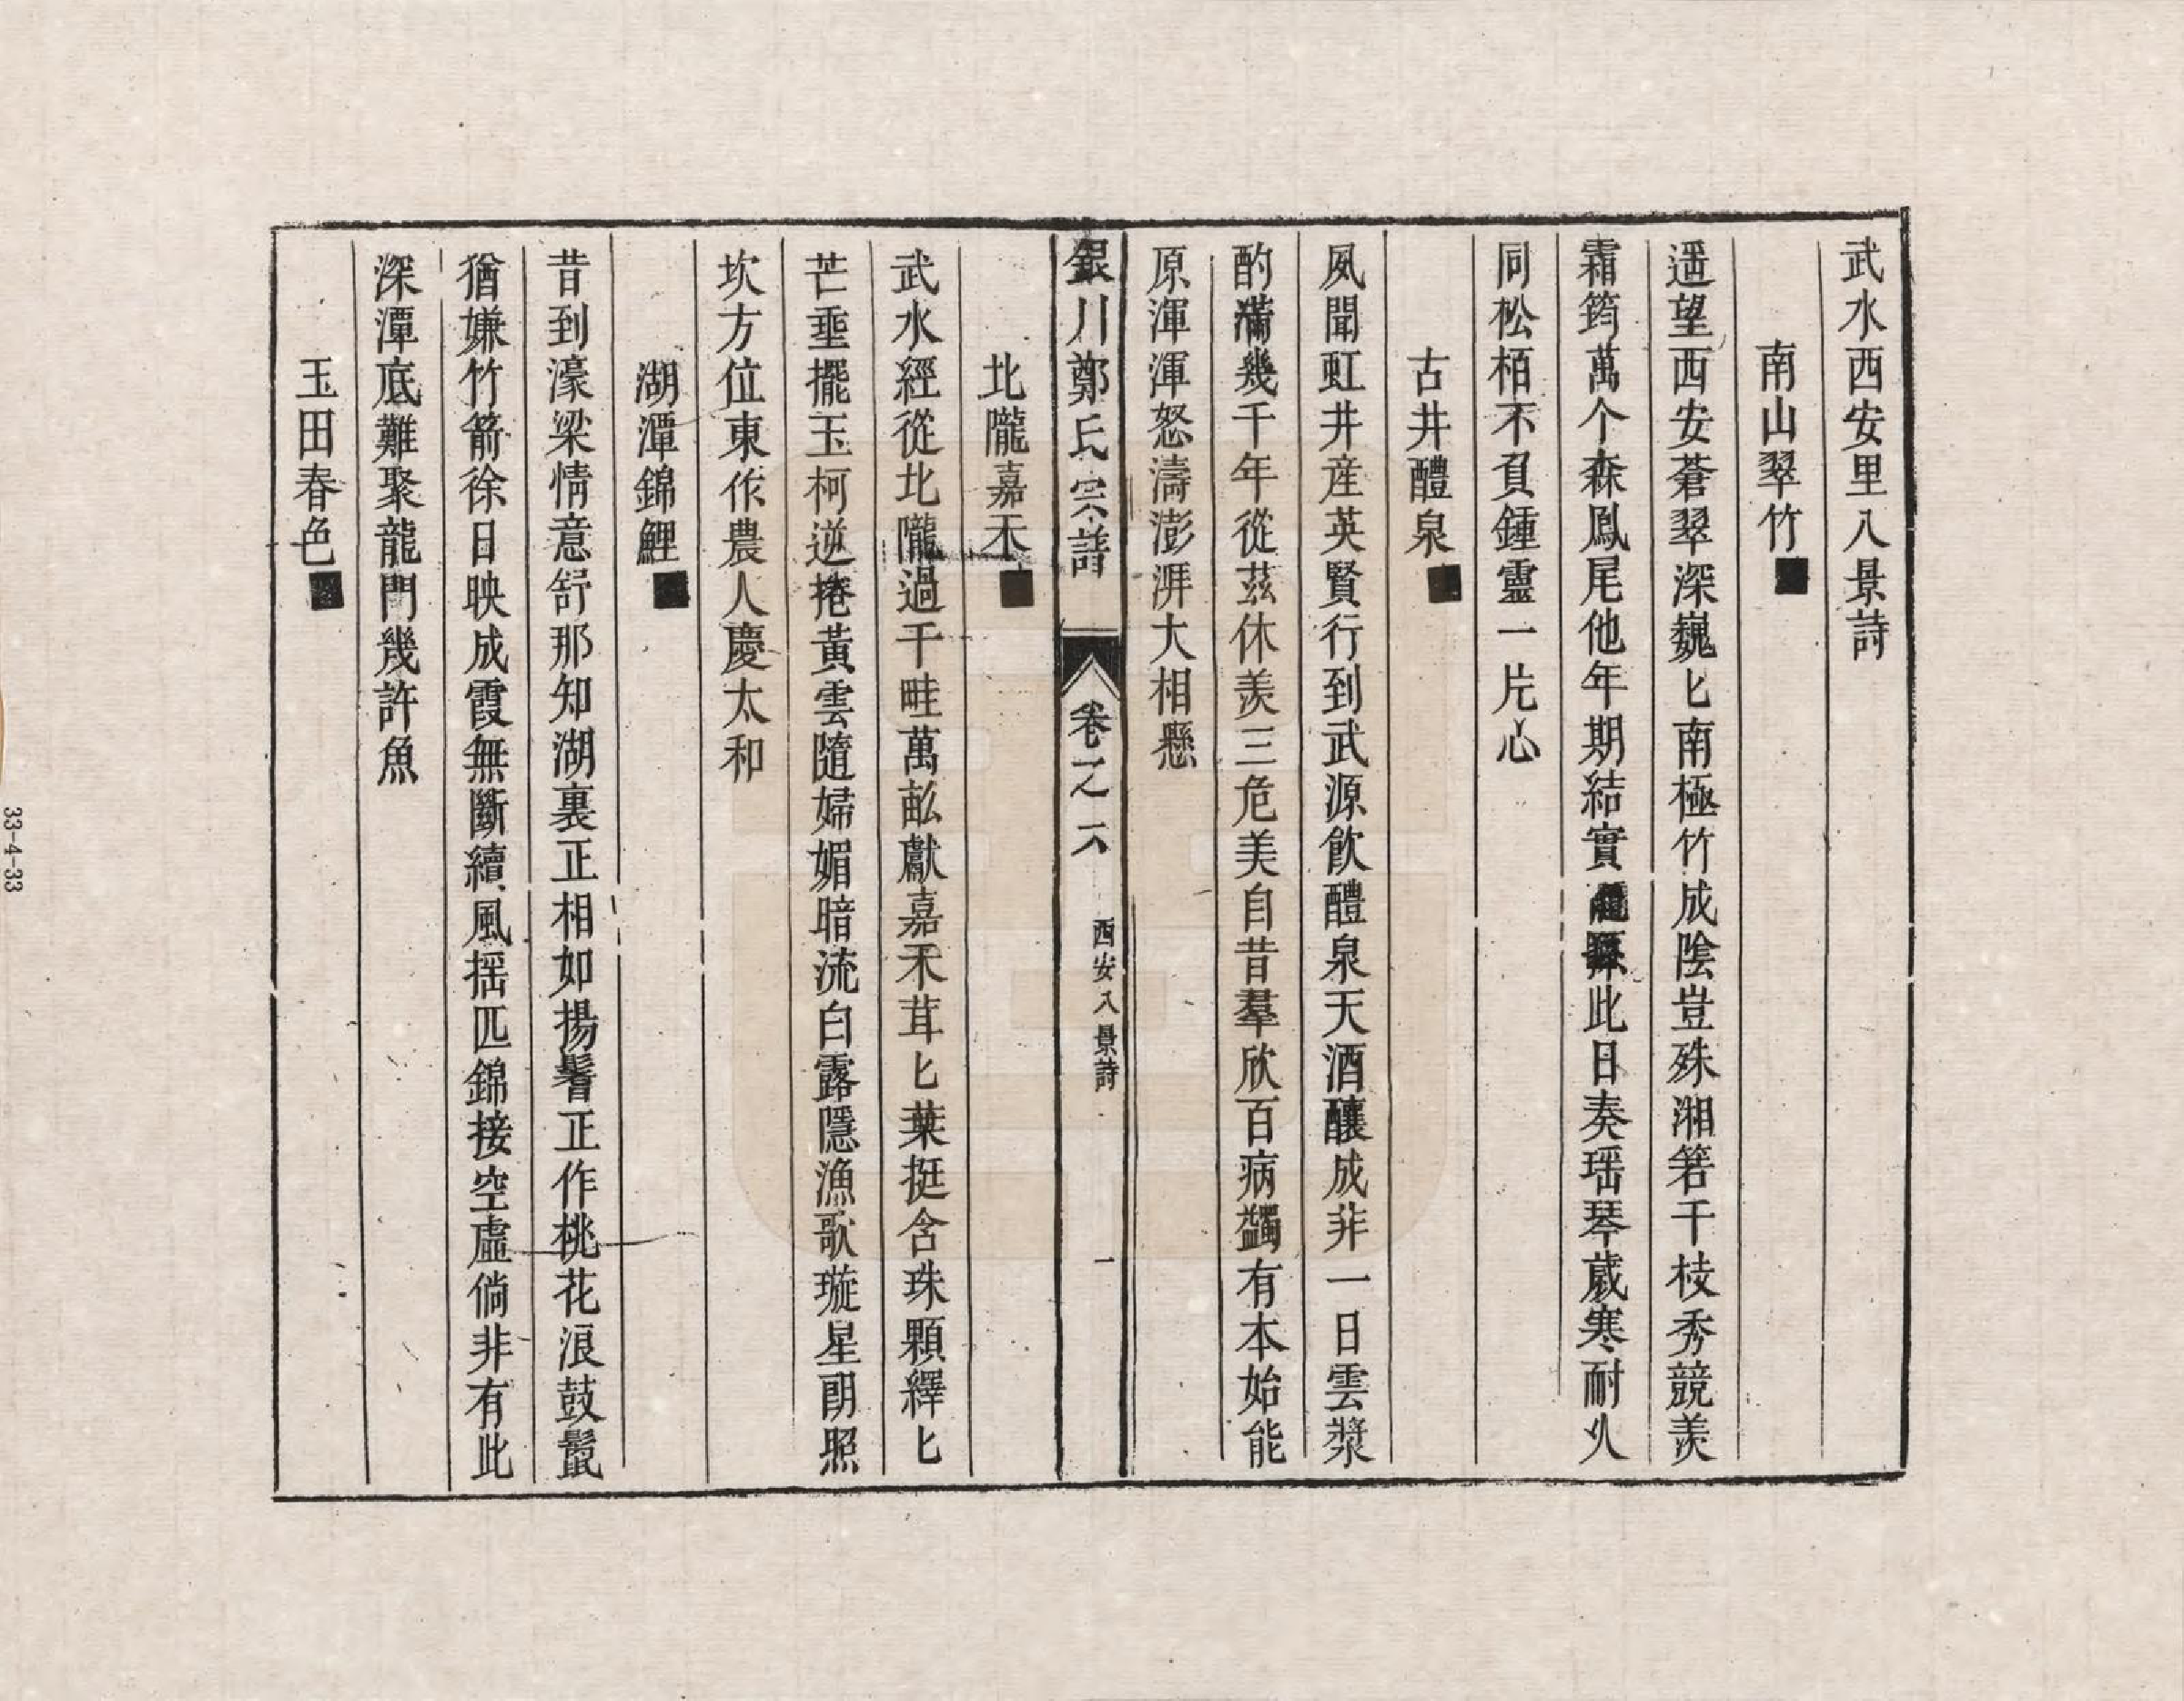 武水西安里八景詩
南山翠竹
遥望西安蒼翠深巍匕南極竹成陰豈殊湘箬干枝秀競羡
霜筠萬个森鳳尾他年期結實此日奏瑶琴歲寒耐久
同松栢不負鍾靈一片心
古井醴泉
夙聞虹井産英賢行到武源飲醴泉天酒釀成非一日雲漿
酌滿幾千年從茲休羡三危美自昔羣欣百病蠲有本始能
原渾渾怒濤澎湃大相懸
銀川鄭氏宗譜
卷之六
西安八景詩
一
北隴嘉禾
武水經從北隴過千畦萬畝獻嘉禾茸匕葉挺含珠顆繹匕
芒垂擺玉柯逆捲黃雲隨婦媚暗流白露隱漁歌璇星朗照
坎方位東作農人慶太和
湖潭錦鯉
昔到濠梁情意舒那知湖裏正相如揚鬐正作桃花浪鼓鬛
猶嫌竹箭徐日映成霞無斷續風揺匹錦接空虛倘非有此
深潭底難聚龍門幾許魚
玉田春色
33-4-33